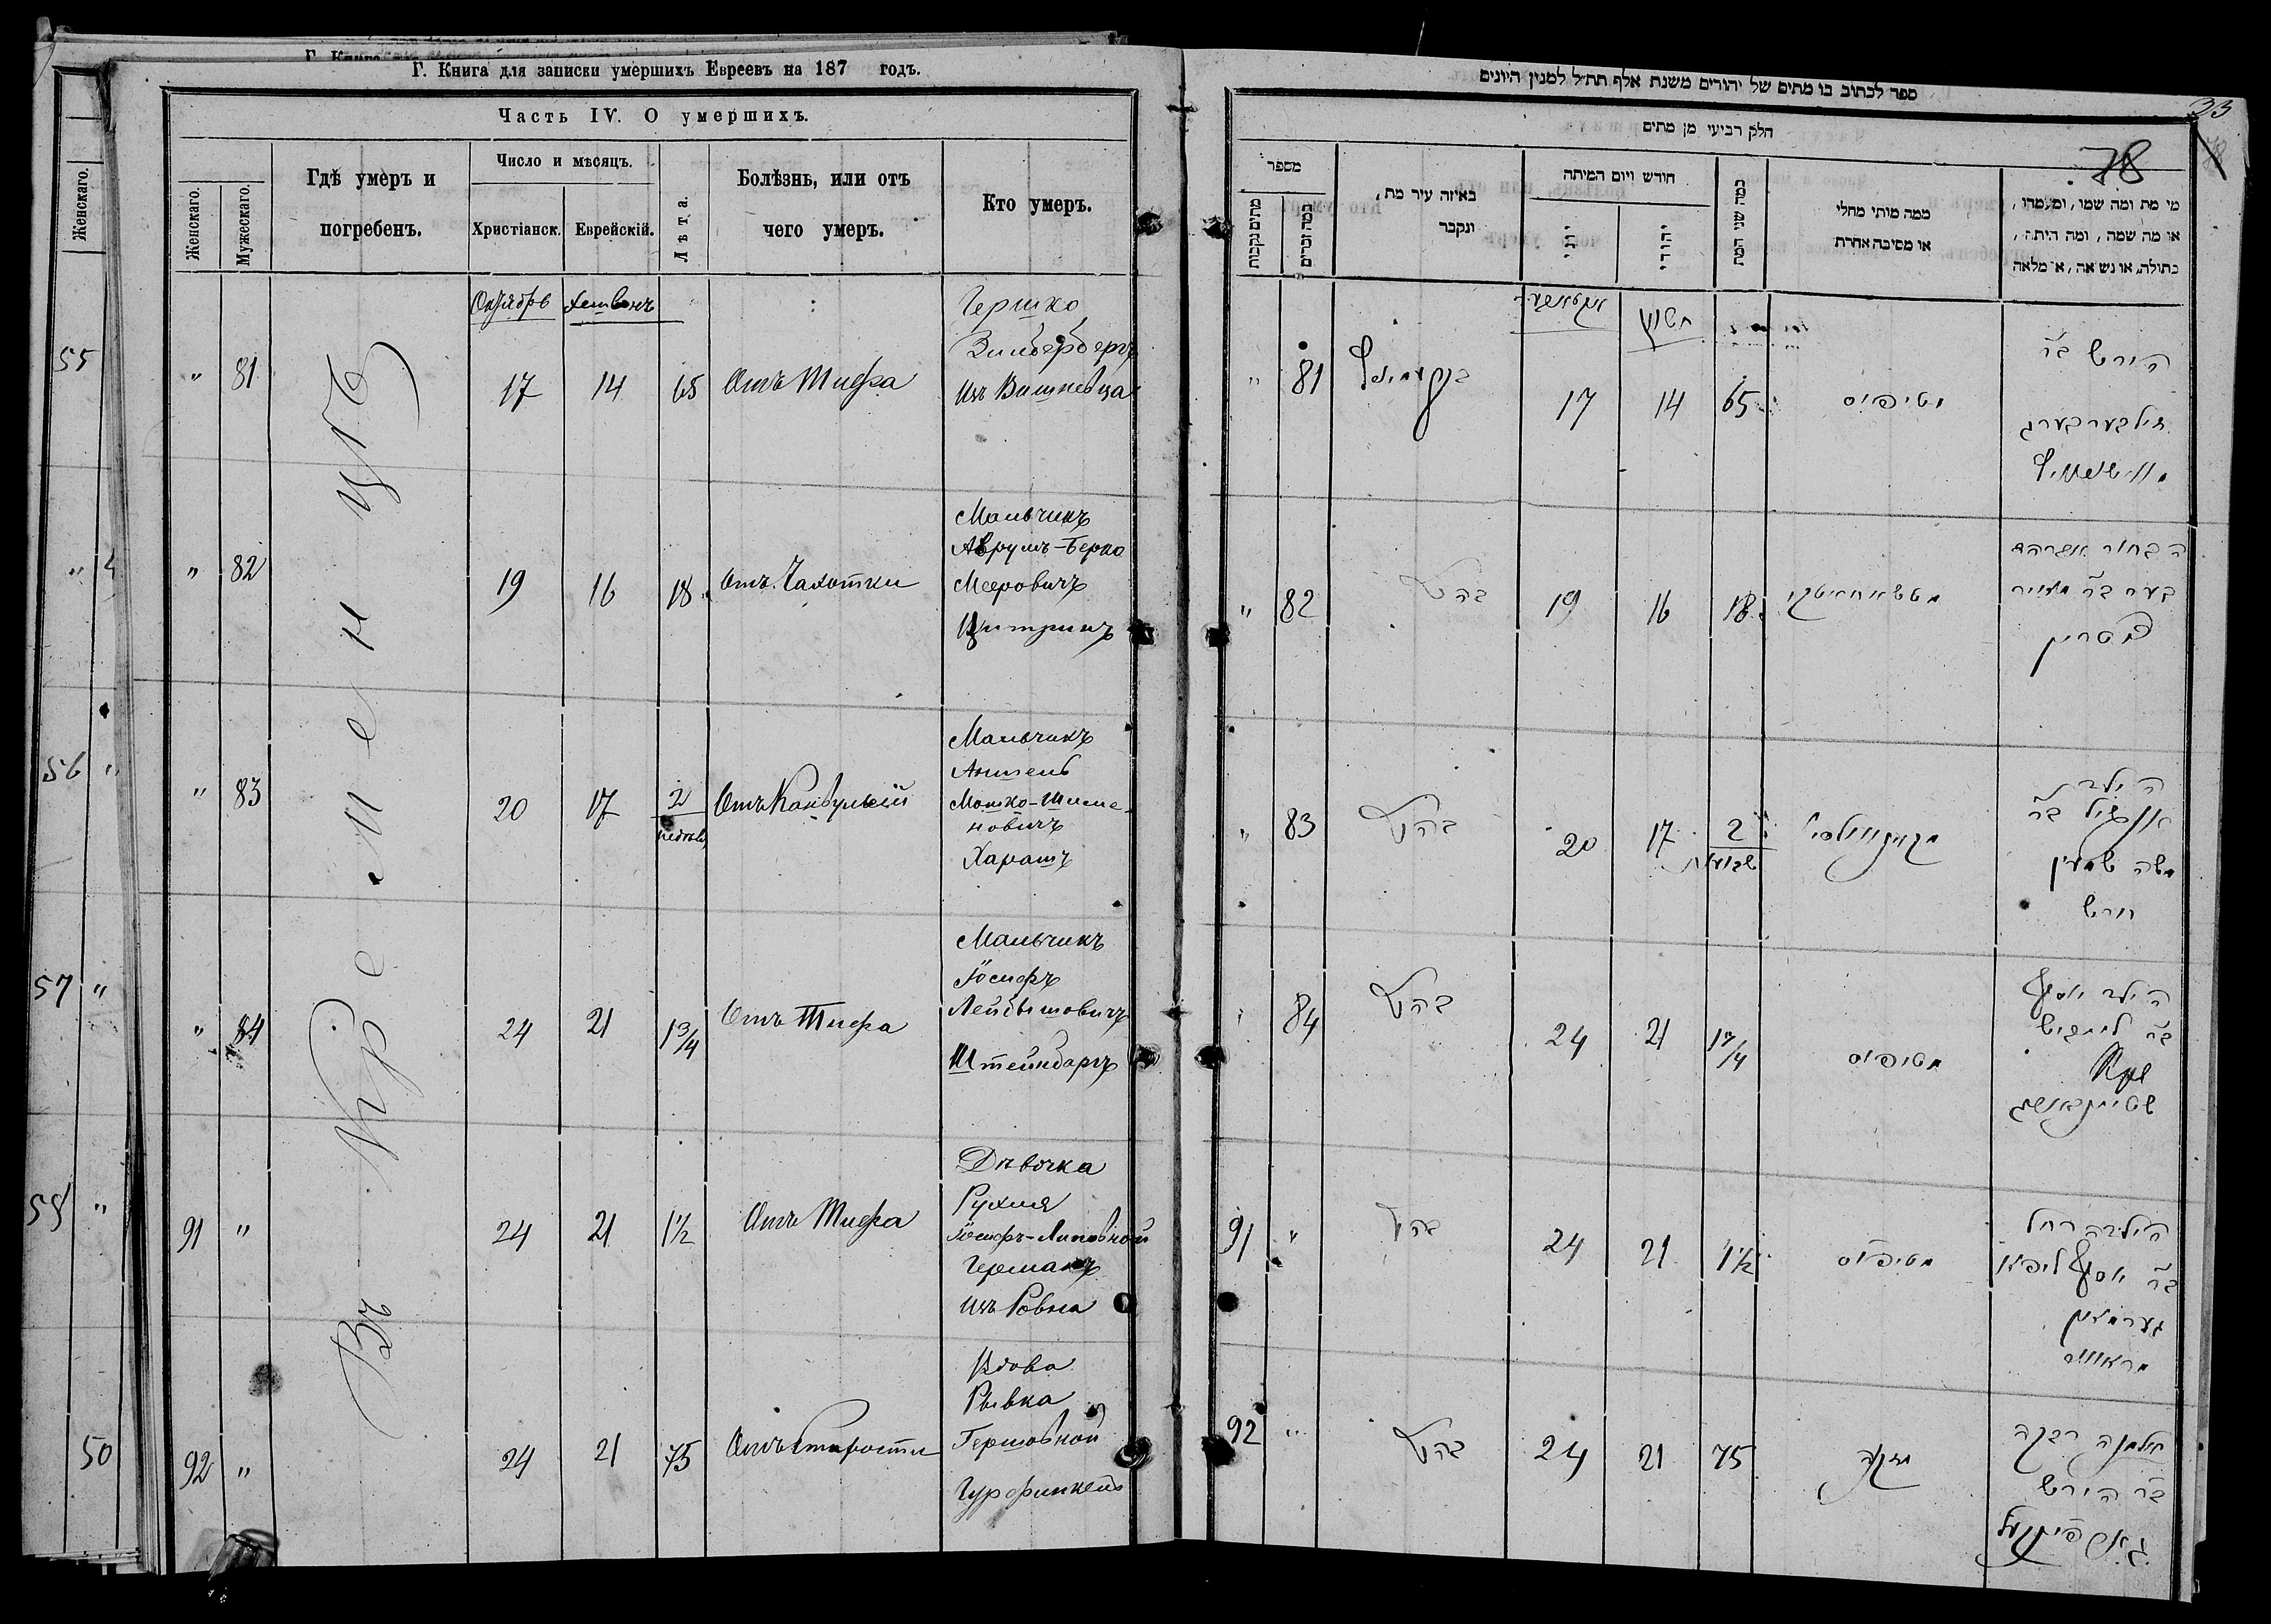 Г. Книга для записки умершихъ Евреевъ на 187 годъ.
Часть IV. О умершихъ.
Женскаго.
Женскаго.
Мужескаго.
Гдѣ умеръ и погребенъ.
Число и мѣсяцъ.
Христіанск.
Еврейскій.
Лѣта.
Болѣзнь, или отъ чего умеръ.
Кто умеръ.
Въ Кременцѣ
Октябрь Хешванъ
55
" 81 17 14 65 Отъ Тифа
Гершко
Зильберберг
изъ Вишневца
" 82 19 16 18 Отъ Чахотки
Мальчикъ
Аврумъ-Берко
Мееровичъ
Цитринъ
56 "
" 83 20 17 2 недѣли Отъ Конвульсій
Мальчикъ
Аншель
Мошко-Шиме-
новичъ
Харашъ
57 "
" 84 24 21 1 3/4 Отъ Тифа
Мальчикъ
Іосифъ
Лейбишовичъ
Штейнбаргъ
"
91 " 24 21 1 1/2 Отъ Тифа
Дѣвочка
Рухля
Іосифъ-Липовной
Германъ
изъ Ровна
50
92 " 24 21 75 Отъ Старости
Вдова
Рывка
Гершовной
Гурфинкель
ספר לכתוב בו מתים של יהודים משנת אלף תת״ל למנין היונים
33
חלק רביעי מן מתים
78
מספר
מתים נקבות
כמה זכרים
באיזה עיר מת,
ונקבר
חודש ויום המיתה
יוני
יהודי
כמה שני המת
ממה מותי מחלי
או מסיבה אחרת
מי מת ומה שמו, ומעמדו,
או מה שמה, ומה היתה,
בתולה, או נשואה, או אלמנה
אקטאבער
חשון
" 81 17 14 65 מטיפוס
הירש ב״ר
זילבערבערג
" 82 בה״ע 19 16 18
הבחור אברהם
בער ב״ר מאיר
ציטרין
" 83 בה״ע 20 17 2 שבועות
הילד
אנשיל ב״ר
משה שמעון
חרש
" 84 בה״ע 24 21 1 3/4 מטיפוס
הילד יוסף
ב״ר לייביש
91 " בה״ע 24 21 1 1/2 מטיפוס
הילדה רחל
ב״ר יוסף ליפא
גערמאן
92 " בה״ע 24 21 75 מזקנה
אלמנה רבקה
ב״ר הירש